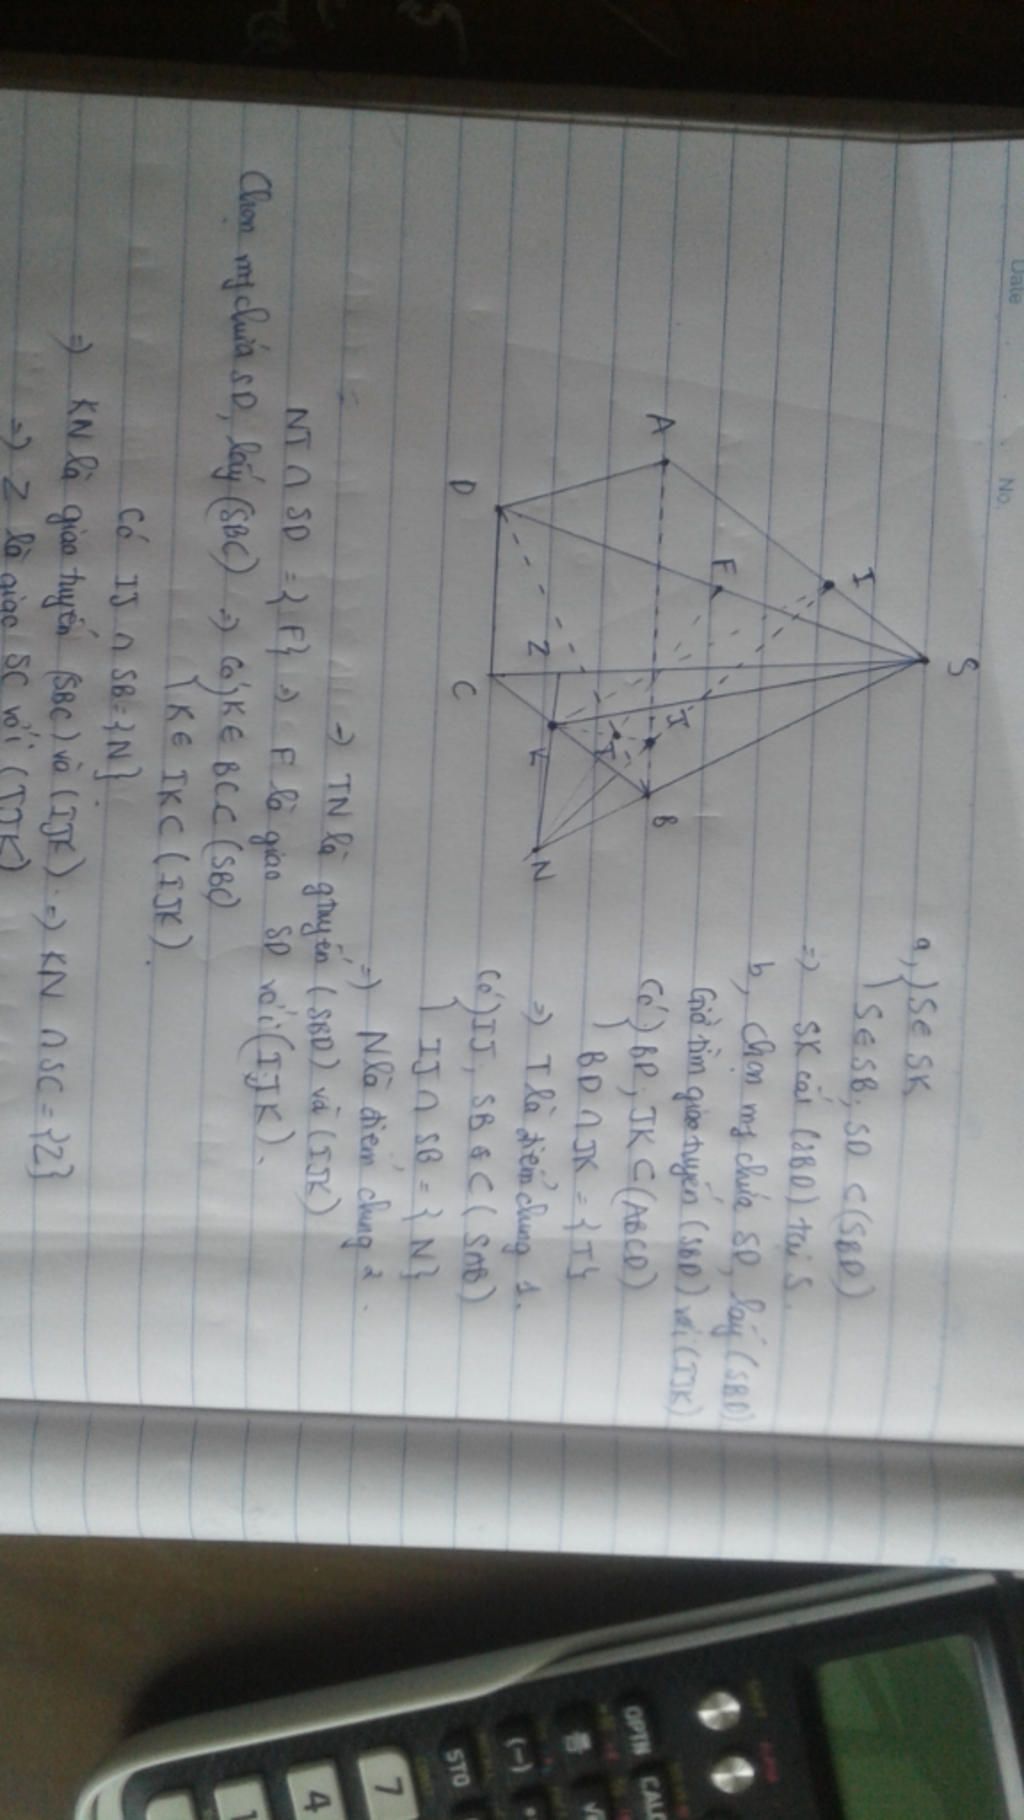 Date
No.
S
I
A
F
D
J
T
B
Z
C
K
N
a, } S ∈ SK
S ∈ SB, SD ⊂ (SBD)
=> SK cắt (SBD) tại S.
b, Chọn mp chứa SD, lấy (SBD)
Giờ tìm giao tuyến (SBD) với (IJK)
Có } BD, JK ⊂ (ABCD)
BD ∩ JK = {T}
=> T là điểm chung 1.
Có } IJ, SB ⊂ (SAB)
IJ ∩ SB = {N}
=> N là điểm chung 2.
=> TN là gtuyến (SBD) và (IJK)
NT ∩ SD = {F} => F là giao SD với (IJK).
Chọn mp chứa SD, lấy (SBC) => Có } K ∈ BC ⊂ (SBC)
K ∈ IK ⊂ (IJK).
Có IJ ∩ SB = {N}.
=> KN là giao tuyến (SBC) và (IJK). => KN ∩ SC = {Z}
=> Z là giao SC với (IJK)
OPTN
CALC
(-)
STO
7
4
1